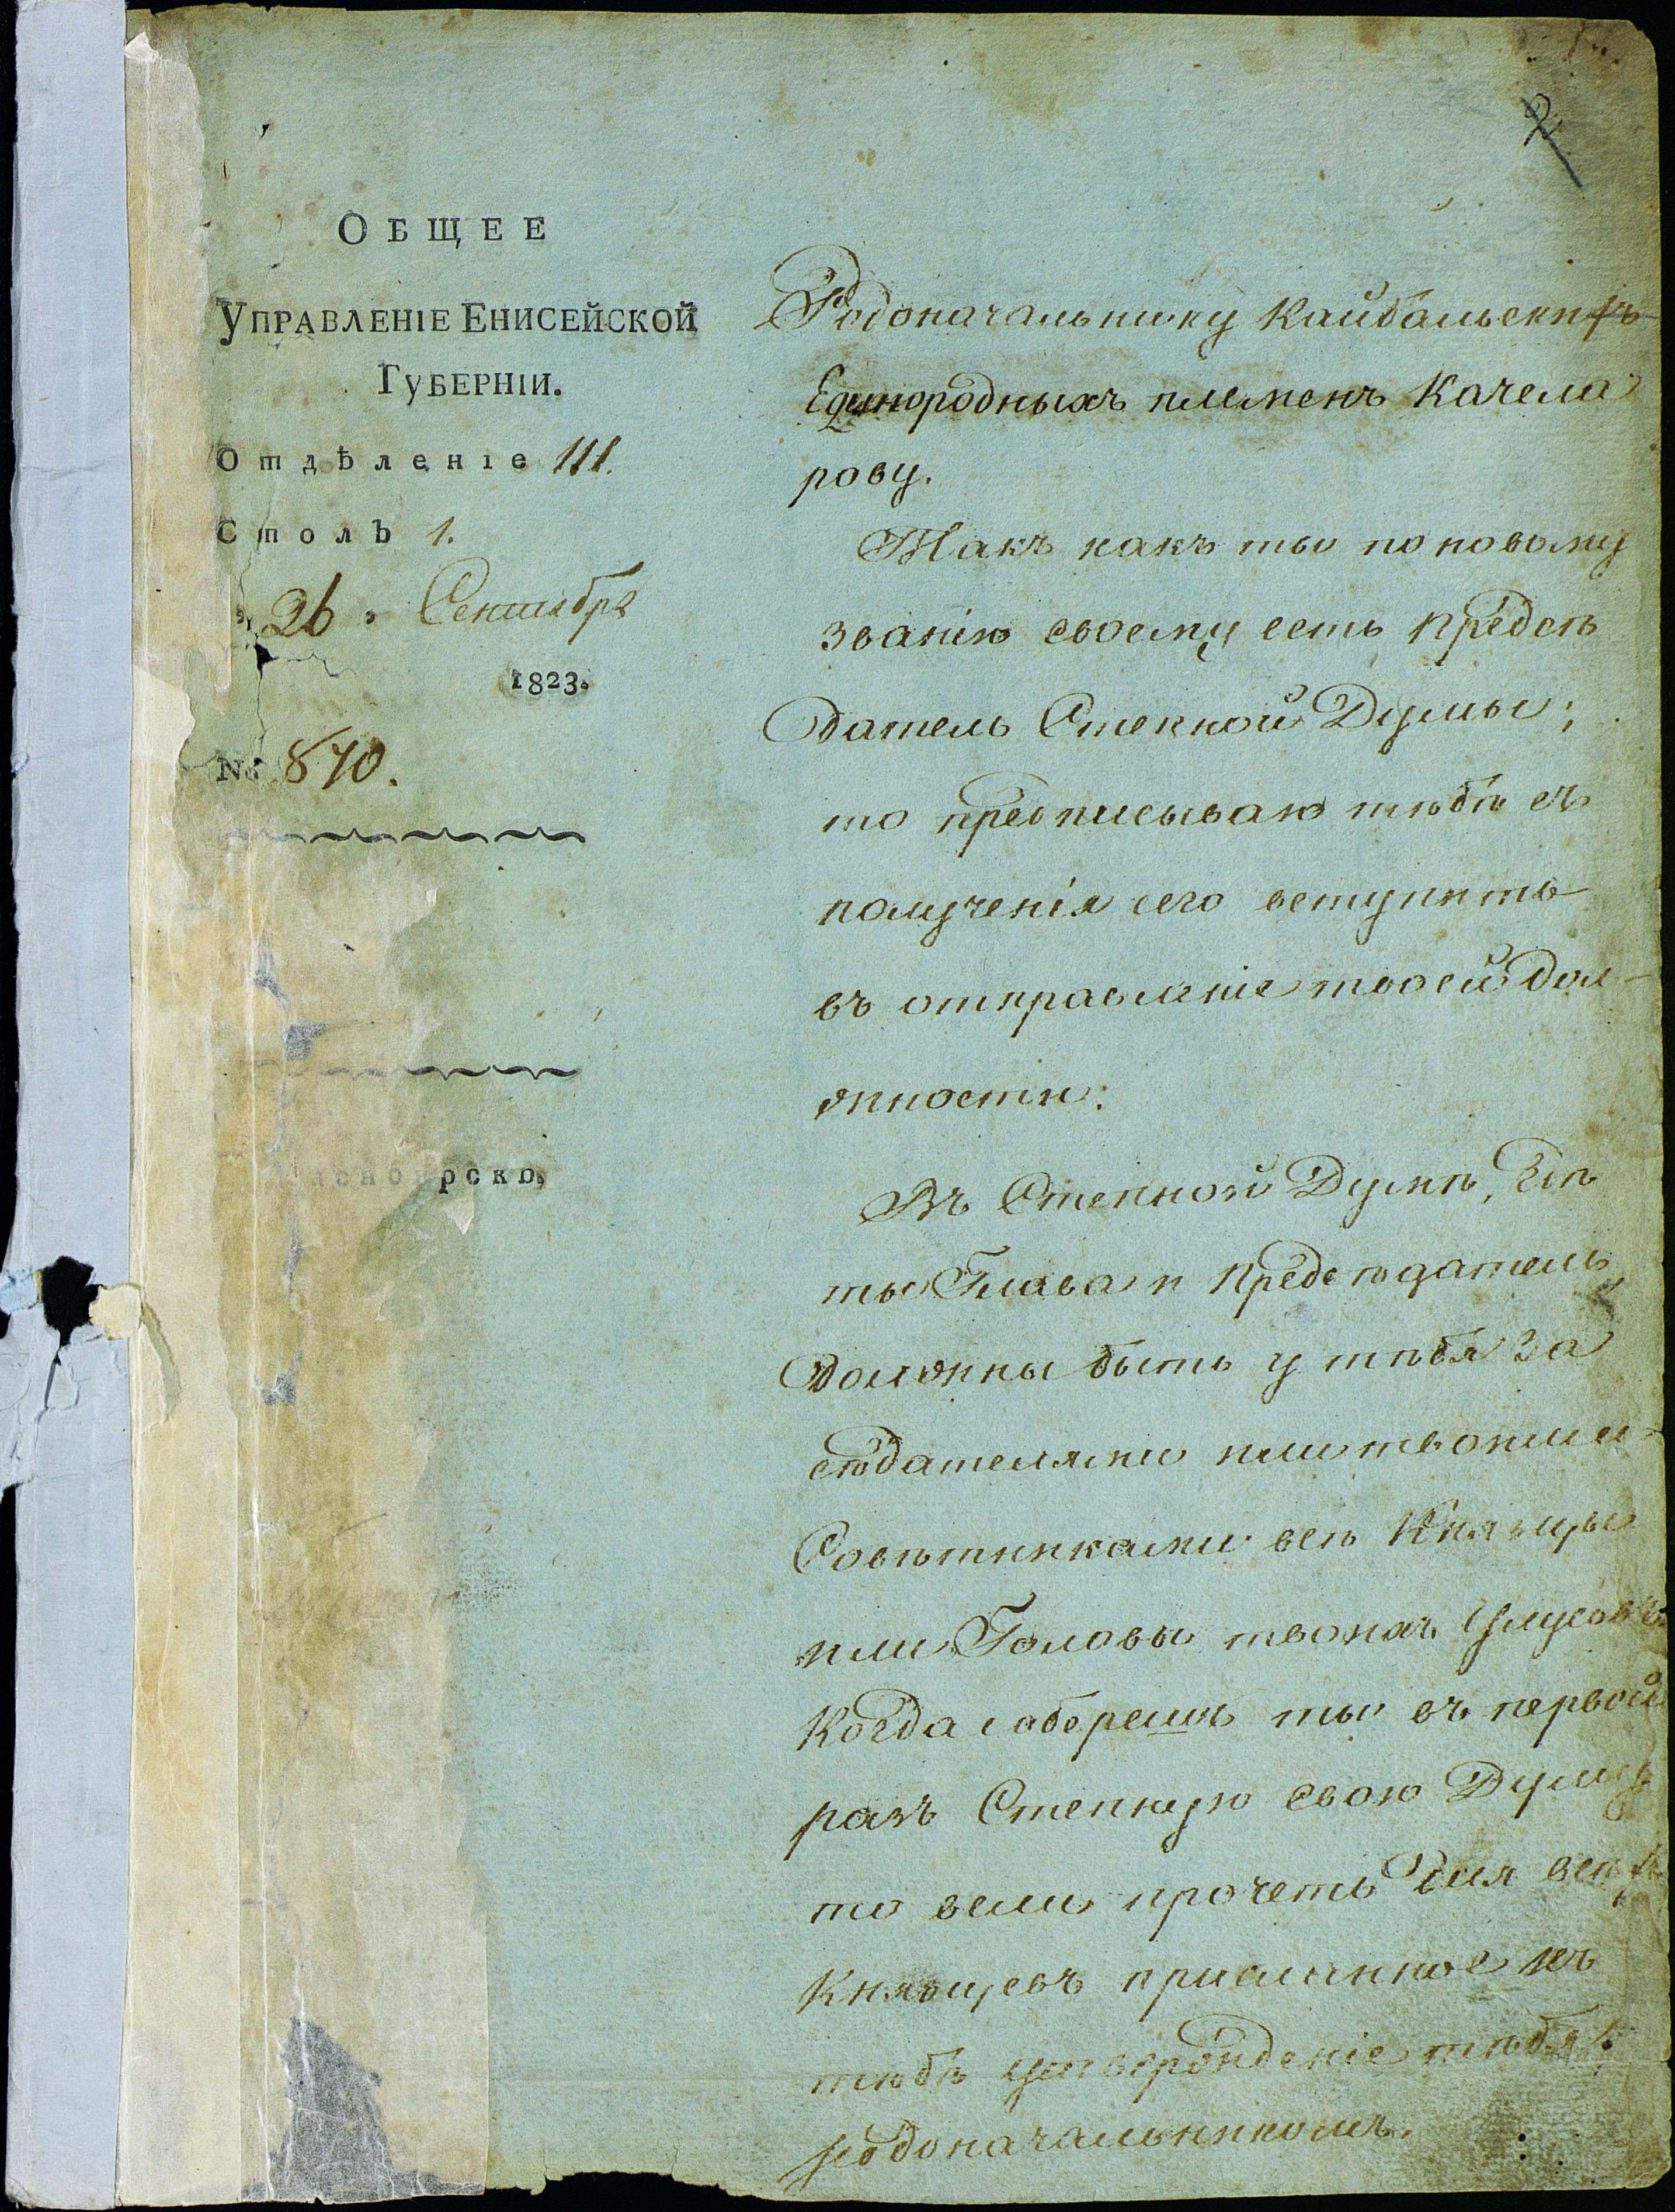 ОБЩЕЕ
УПРАВЛЕНІЕ ЕНИСЕЙСКОЙ
ГУБЕРНІИ.
Отдѣленіе III.
Столъ 1.
26 Сентября
1823.
№ 870.
рскъ,
Родоначальнику Кайбальскихъ
Единородныхъ племенъ Качела
рову.
Такъ какъ ты по новому
званію своему есть предсѣ
датель Степной Думы;
то предписываю тѣбѣ съ
полученія сего вступить
въ отправленіе твоей дол-
жности:
Въ Степной Думѣ, гдѣ
ты Глава и предсѣдатель,
должны быть у тѣбя За
сѣдателями или твоими
Совѣтниками всѣ Князцы
или Головы твоихъ Улусовъ.
Когда соберешь ты въ первой
разъ Степную свою Думу
то вели прочеть для всѣхъ
Князцевъ присланное къ
тѣбѣ утвержденіе тѣбя
родоначальникомъ.